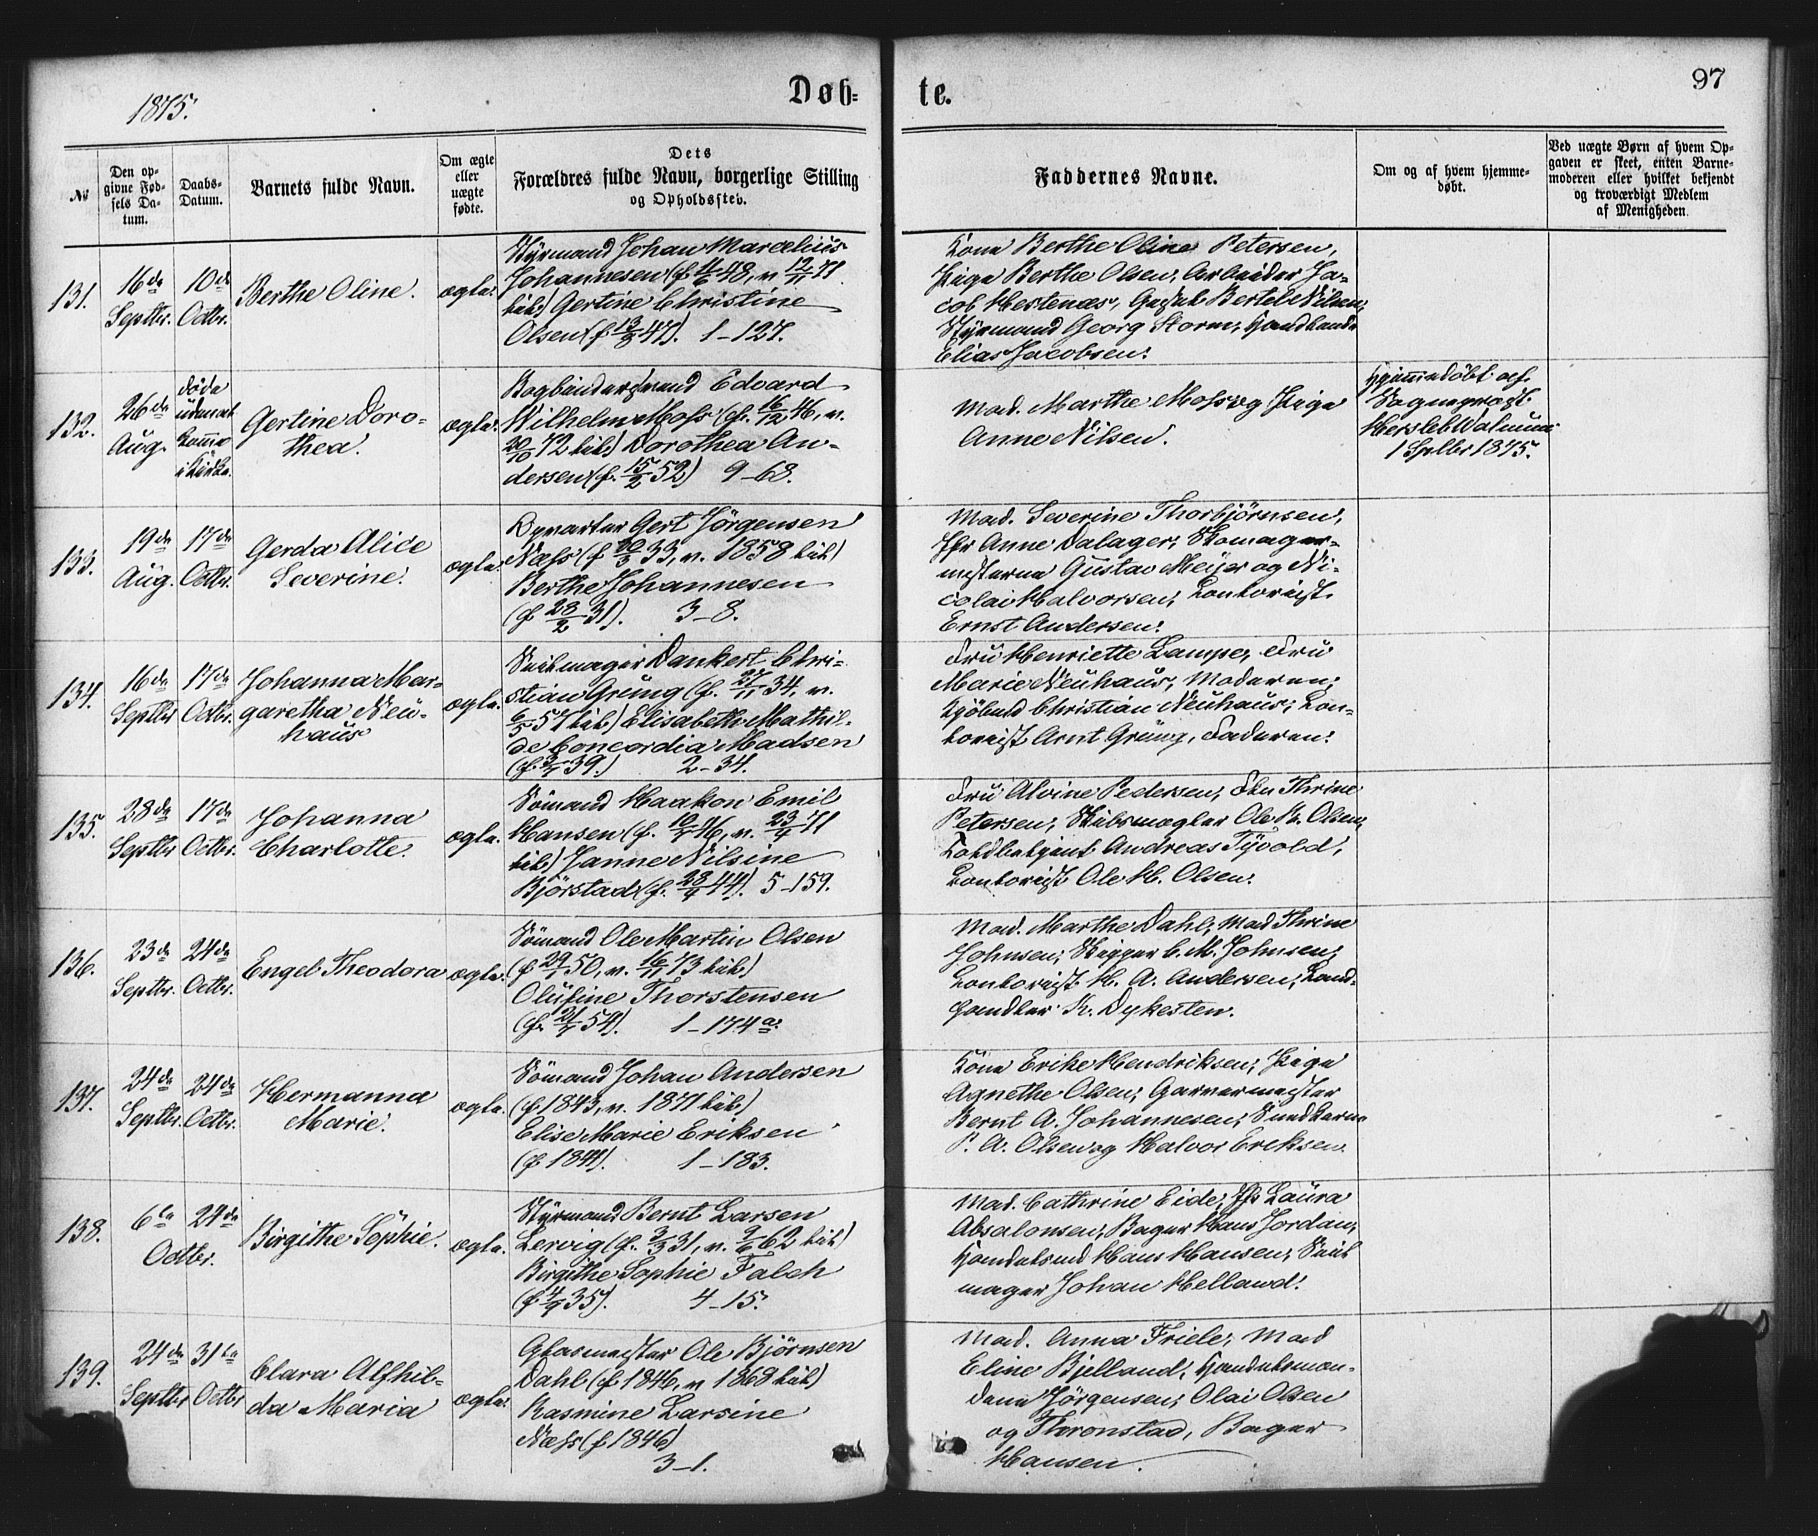 1875.
Døb-
te.
97
No
Den op-
givne Fød-
sels Da-
tum.
Daabs-
Datum.
Barnets fulde Navn.
Om ægte
eller
uægte
fødte.
Dets
Forældres fulde Navn, borgerlige Stilling
og Opholdssted.
Faddernes Navne.
Om og af hvem hjemme-
døbt.
Ved uægte Børn af hvem Op-
gaven er skeet, enten Barne-
moderen eller hvilket bekjendt
og troværdigt Medlem
af Menigheden.
131.
16de
Septbr.
10de
Octbr.
Berthe Oline.
ægte.
Styrmand Johan Marcelius
Johannesen (f. 48, v. 12/11 71
kirk.) Gertine Christine
Olsen (f. 47). 1-127.
Kone Berthe Oline Petersen,
Pige Berthe Olsen, Arbeider Ja-
cob Hestenæs, Bertel Nilsen,
Styrmand Georg Storm,
Elias Jacobsen.
132.
26de
Aug.
døde
uden at
komme
i Kirke.
Gertine Doro-
thea.
ægte.
Bogbindersvend Edvard
Wilhelm Moss (f. 16/12 46, v.
20/10 72 kirk.) Dorothea An-
dersen (f. 15/2 52) 9-68.
Mad. Marthe Moss og Pige
Anne Nilsen.
Hjemmedøbt af
Sognepræst
Hersleb Walnum
1 Septbr 1875.
133.
19de
Aug.
17de
Octbr.
Gerda Alice
Severine.
ægte.
Gert Jörgensen
Næss (f. 33, v. 1858 kirk.)
Berthe Johannesen
(f. 28/2 31). 3-8.
Mad. Severine Thorbjörnsen,
Jfr Anne Dalager, Skomager-
mesterne Gustav Meijer og Ni-
colai Halvorsen, Kontorist
Ernst Andersen.
134.
16de
Septbr
17de
Octbr.
Johanna Mar-
garetha Neu-
haus
ægte.
Seilmager Dankert Chri-
stian Grüng (f. 27/11 34, v.
57 kirk.) Elisabeth Mathil-
de Concordia Madsen
(f. 39.) 2-34.
Fru Henriette Lampe, Fru
Marie Neuhaus, Moderen;
Kjøbmd Christian Neuhaus, Kon-
torist Arnt Grüng, Faderen.
135.
28de
Septbr
17de
Octbr.
Johanna
Charlotte.
ægte.
Sömand Haakon Emil
Hansen (f. 46, v. 71
kirk.) Janne Nilsine
Björstad (f. 44). 5-159.
Fru Alvine Pedersen, Thrine
Petersen, Skibsmægler Ole Olsen,
Andreas Tyvold,
Kontorist Ole H. Olsen.
136.
23de
Septbr.
24de
Octbr.
Engel Theodora
ægte.
Sömand Ole Martin Olsen
(f. 50, v. 16/11 73 kirk.)
Olüfine Thorstensen
(f. 54). 1-174a.
Mad. Marthe Dahl, Mad Thrine
Johnsen, Skipper C. M. Johnsen,
Kontorist H. A. Andersen, Land-
handler K. Dykesten.
137.
24de
Septbr.
24de
Octbr.
Hermanna
Marie.
ægte.
Sömand Johan Andersen
(f. 1843, v. 1871 kirk.)
Elise Marie Eriksen
(f. 1844). 1-183.
Kone Erike Hendriksen, Pige
Agnethe Olsen, Garvermester
Bernt A. Johannesen,
P. A. Olsen og Halvor Eriksen.
138.
6te
Octbr.
24de
Birgithe Sophie.
ægte.
Styrmand Bernt Larsen
Lervig (f. 31, v. 62 kirk.)
Birgithe Sophie Falch
(f. 35). 4-15.
Mad. Cathrine Eide, Jfr Laura
Absalonsen, Bager Hans Jordan,
Handelsmd Hans Hansen, Seil
mager Johan Helland.
139.
24de
Septbr
31te
Octbr
Clara Alfhil-
da Maria
ægte.
Glasmester Ole Björnsen
Dahl (f. 1846, v. 1868 kirk.)
Rasmine Larsine
Næss (f. 1846)
3-1.
Mad. Anna Friele, Mad
Eline Bjelland, Handelsmæn-
dene Jörgensen, Olai Olsen
og Thronstad, Bager
Hansen.